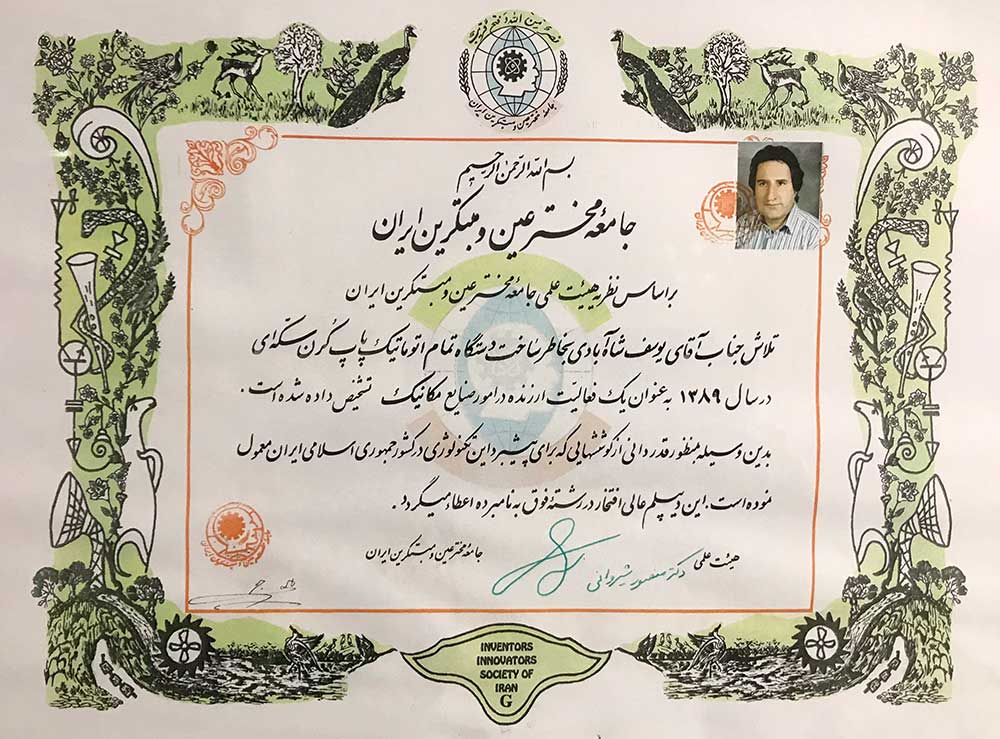 جامعه مخترعین و مبتکرین ایران
بسم الله الرحمن الرحیم
جامعهٔ مخترعین و مبتکرین ایران
براساس نظریه هیئت علمی جامعهٔ مخترعین و مبتکرین ایران
تلاش جناب آقای یوسف شاه آبادی بخاطر ساخت دستگاه تمام اتوماتیک پاپ کُرن سکّه‌ای
در سال ۱۳۸۹ به عنوان یک فعالیت ارزنده در امور صنایع مکانیک تشخیص داده شده است.
بدین وسیله بمنظور قدردانی از کوششهایی که برای پیشبرد این تکنولوژی در کشور جمهوری اسلامی ایران معمول
نموده است. این دیپلم عالی افتخار در رشتهٔ فوق به نامبرده اعطاء میگردد.
هیئت علمی جامعهٔ مخترعین و مبتکرین ایران
دکتر منصور شیروانی
INVENTORS
INNOVATORS
SOCIETY OF
IRAN
G